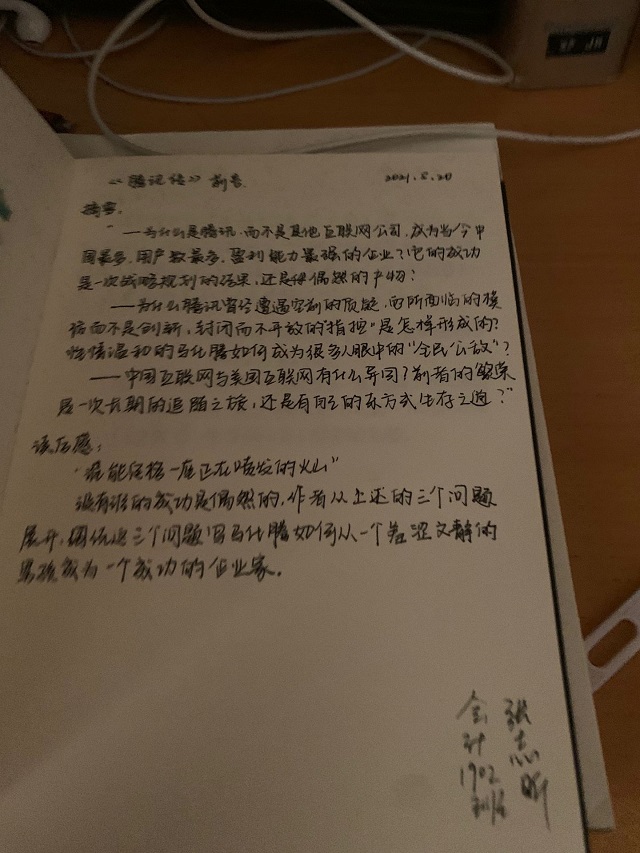 《腾讯传》前言
2021.8.20
摘要:
"—为什么是腾讯,而不是其他互联网公司,成为当今中
国最多,用户数最多,盈利能力最强的企业?它的成功
是一次战略规划的结果,还是偶然的产物?
—为什么腾讯曾经遭遇空前的质疑,而所面临的模
仿而不是创新,封闭而不开放的指控"是怎样形成的?
性情温和的马化腾如何成为很多人眼中的"全民公敌"?
—中国互联网与美国互联网有什么异同?前者的繁荣
是一次长期的追随之旅,还是有自己的东方式生存之道?"
读后感:
"谁能定格一座正在喷发的火山"
没有谁的成功是偶然的,作者从上述的三个问题
展开,围绕这三个问题写马化腾如何从一个羞涩文静的
男孩成为一个成功的企业家。
会计1902
张志昕